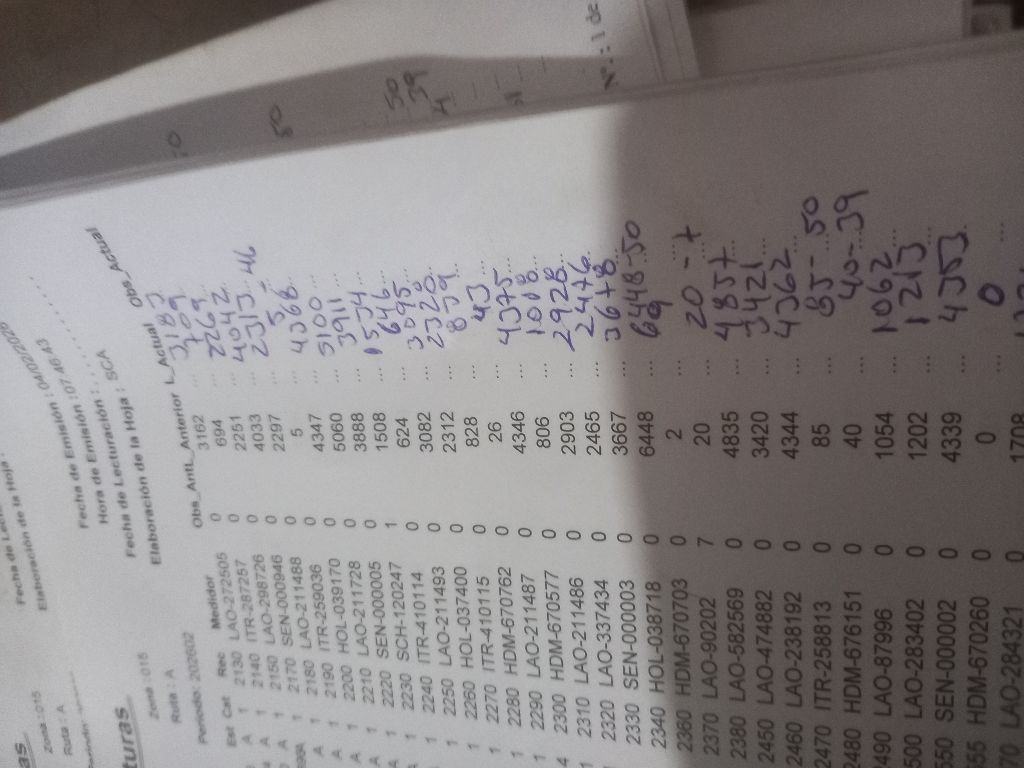 Fecha de
Elaboración de la Hoja :
Zona : 015
Ruta : A
Fecha de Emisión : 04/02/2026
Hora de Emisión : 07:46:43
Fecha de Lecturación :
Elaboración de la Hoja : SCA
turas
Zona : 015
Ruta : A
Periodo: 202602
Est Cat Rec Medidor Obs_Ant L_Anterior L_Actual Obs_Actual
A 1 2130 LAO-272505 0 3162 ... 3183
A 1 2140 ITR-287257 0 694 ... 709
A 1 2150 LAO-298726 0 2251 ... 2269
1 2170 SEN-000946 0 4033 ... 4042
A 1 2180 LAO-211488 0 2297 ... 2313-46
A 1 2190 ITR-259036 0 5 ... 5
A 1 2200 HOL-039170 0 4347 ... 4368
A 1 2210 LAO-211728 0 5060 ... 5100
A 1 2220 SEN-000005 0 3888 ... 3911
1 2230 SCH-120247 1 1508 ... 1534
1 2240 ITR-410114 0 624 ... 646
1 2250 LAO-211493 0 3082 ... 3095
1 2260 HOL-037400 0 2312 ... 2320
1 2270 ITR-410115 0 828 ... 839
1 2280 HDM-670762 0 26 ... 43
1 2290 LAO-211487 0 4346 ... 4375
1 2300 HDM-670577 0 806 ...
1 2310 LAO-211486 0 2903 ... 2928
1 2320 LAO-337434 0 2465 ... 2476
2330 SEN-000003 0 3667 ... 3678
2340 HOL-038718 0 6448 ... 6448-50
2360 HDM-670703 0 2 ...
2370 LAO-90202 7 20 ... 20-7
2380 LAO-582569 0 4835 ... 4857
2450 LAO-474882 0 3420 ... 3421
2460 LAO-238192 0 4344 ... 4362
2470 ITR-258813 0 85 ... 85-50
2480 HDM-676151 0 40 ... 40-39
490 LAO-87996 0 1054 ... 1062
500 LAO-283402 0 1202 ... 1213
550 SEN-000002 0 4339 ... 4353
HDM-670260 0 0 ... 0
70 LAO-284321 0 1708 ...
50
50
39